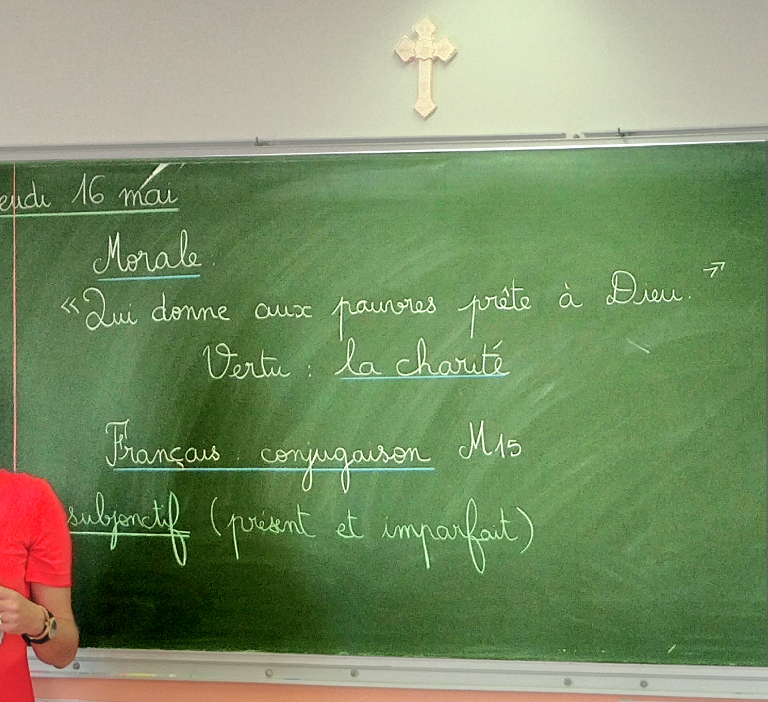 eudi 16 mai
Morale.
« Qui donne aux pauvres prête à Dieu. »
Vertu : la charité
Français : conjugaison M15
subjonctif (présent et imparfait)